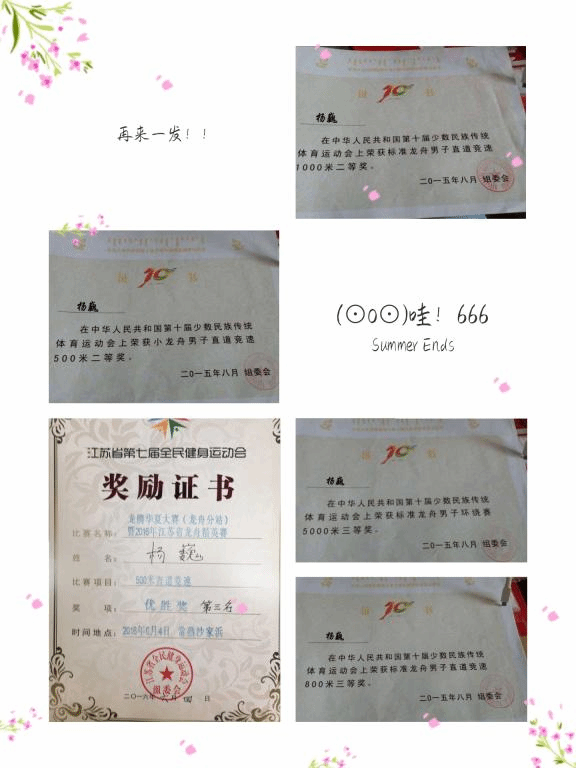 再来一发！！
杨巍
在中华人民共和国第十届少数民族传统
体育运动会上荣获标准龙舟男子直道竞速
1000米二等奖。
二〇一五年八月 组委会
杨巍
在中华人民共和国第十届少数民族传统
体育运动会上荣获小龙舟男子直道竞速
500米二等奖。
二〇一五年八月 组委会
(⊙o⊙)哇！666
Summer Ends
江苏省第七届全民健身运动会
奖励证书
龙腾华夏大赛（龙舟分站）
比赛名称：暨2016年江苏省龙舟精英赛
姓 名：杨巍
比赛项目：500米直道竞速
奖 项：优胜奖 第三名
时间地点：2016年6月4日 常熟沙家浜
江苏省第七届全民健身运动会
组委会
二〇一六年六月四日
杨巍
在中华人民共和国第十届少数民族传统
体育运动会上荣获标准龙舟男子环绕赛
5000米三等奖。
二〇一五年八月 组委会
杨巍
在中华人民共和国第十届少数民族传统
体育运动会上荣获标准龙舟男子直道竞速
800米三等奖。
二〇一五年八月 组委会